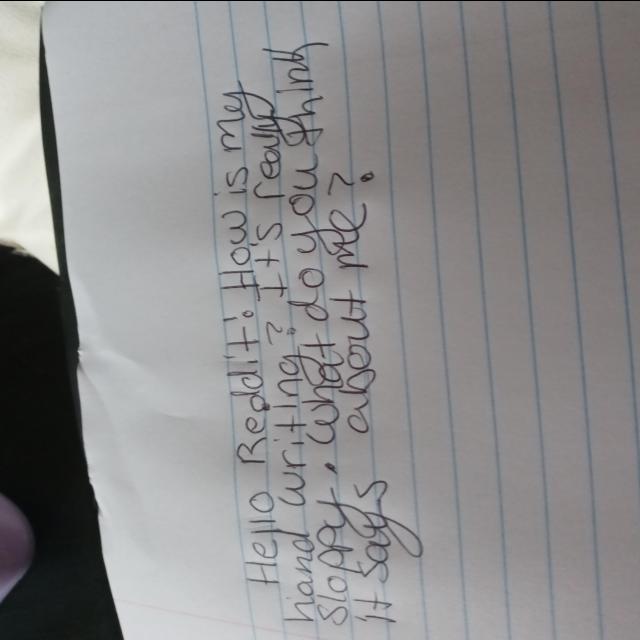 Hello Reddit: How is my
hand writing? It's really
sloppy. What do you think
it says about me?